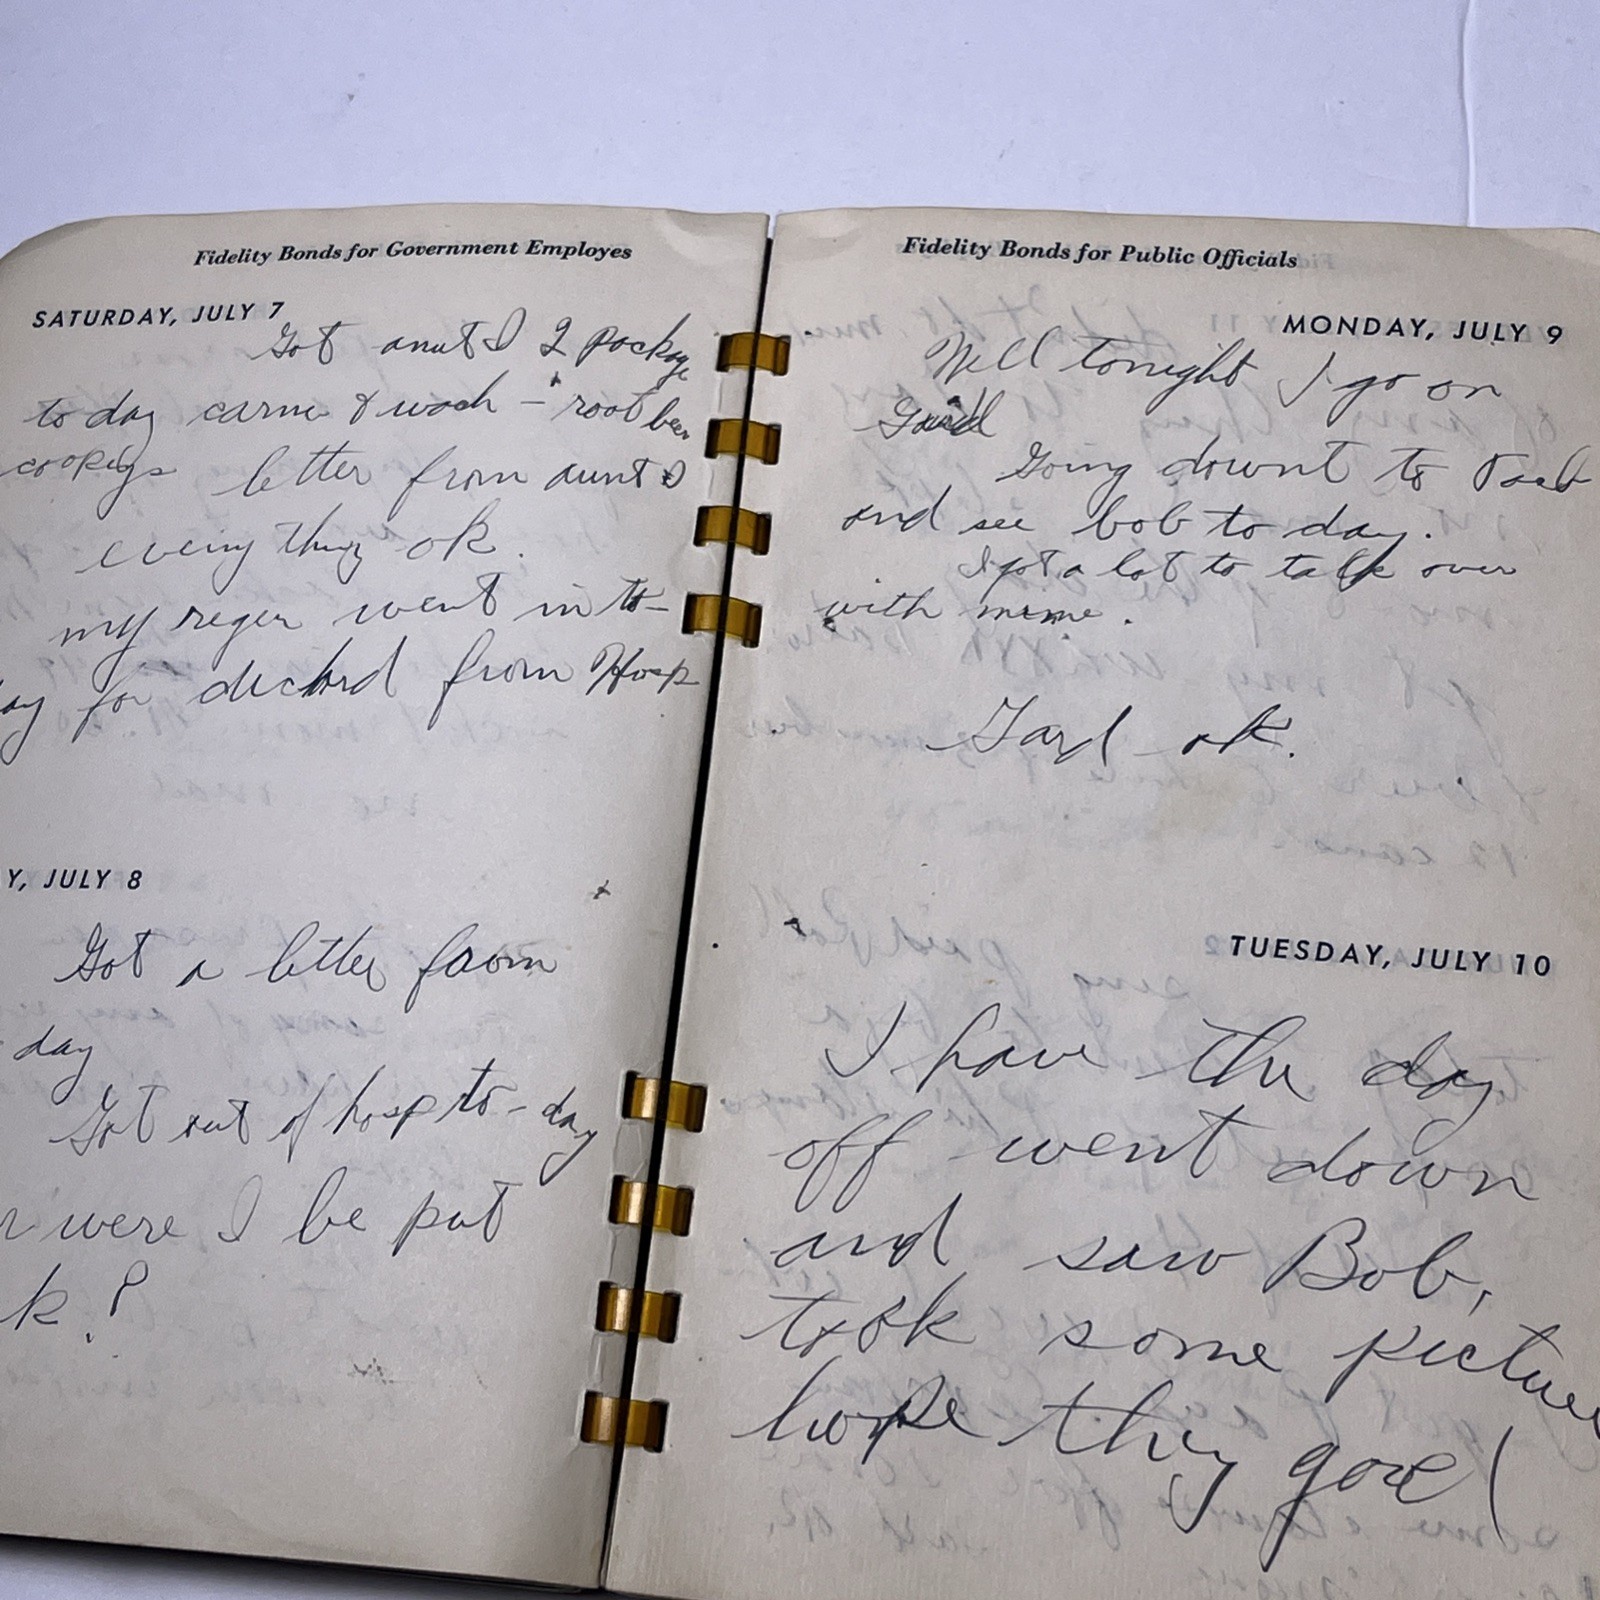 Fidelity Bonds for Government Employes
SATURDAY, JULY 7
Got anut I 2 package
to day came & wach - root beer
cookeys letter from aunt I
everything ok.
my reger went in to-
ay for dichard from Hosp
Y, JULY 8
Got a letter from
day
Got out of hosp to-day
were I be put
k.?
Fidelity Bonds for Public Officials
MONDAY, JULY 9
Well tonight I go on
Gaurd
Going downt to
and see bob to day.
I got a lot to talk over
with mime.
Gard ok.
TUESDAY, JULY 10
I have the day
off went down
and saw Bob,
took some picture
hope they